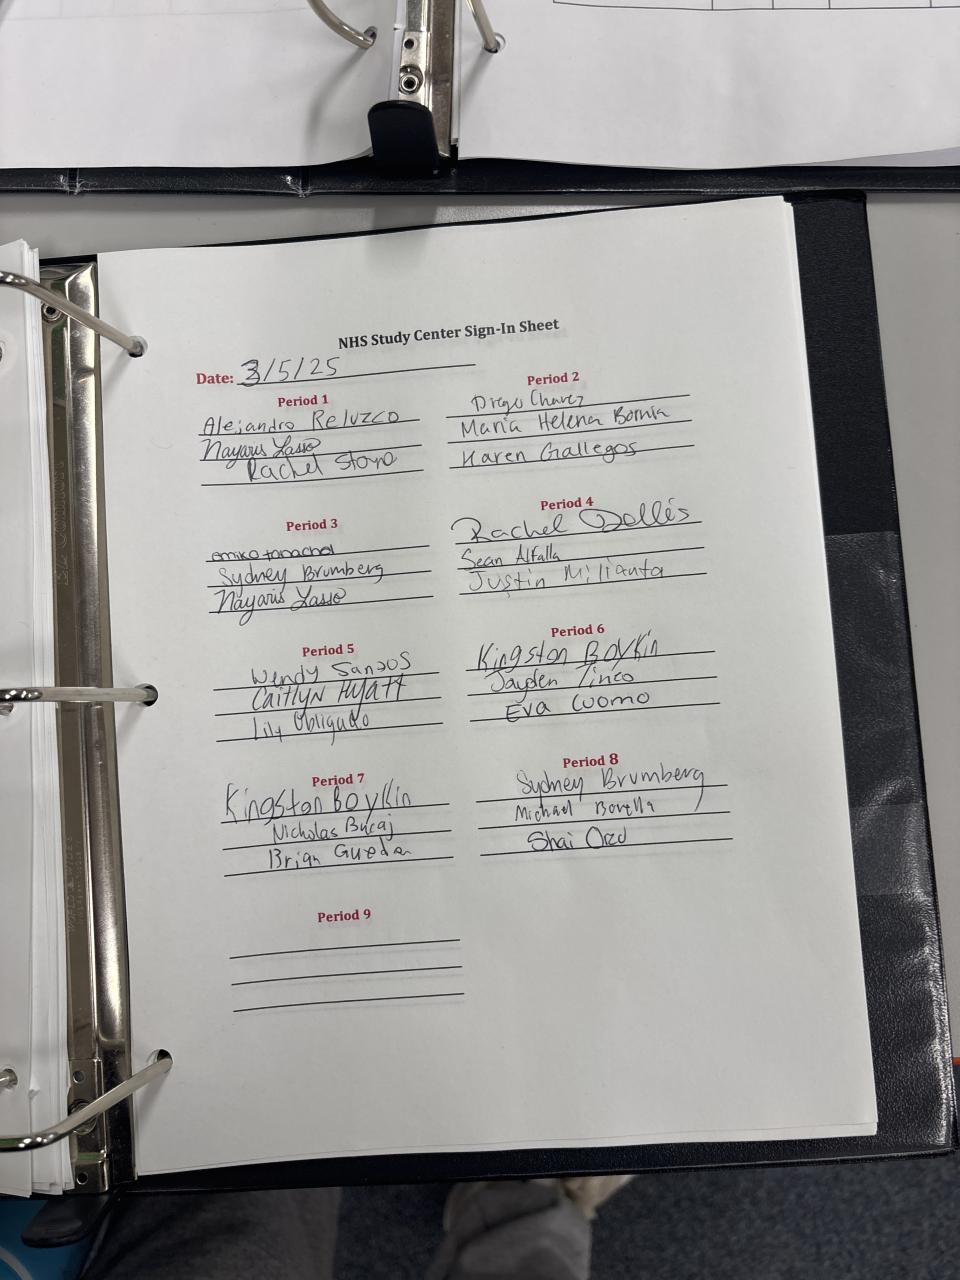 NHS Study Center Sign-In Sheet
Date: 3/5/25
Period 1
Alejandro Reluzco
Nayaris Lasso
Rachel Stoyo
Period 2
Diego Chavez
Maria Helena Bornia
Karen Gallegos
Period 3
emiko
Sydney Brumberg
Nayaris Lasso
Period 4
Rachel Dollis
Sean Alfalla
Justin Milianta
Period 5
Wendy Santos
Caitlyn Hyatt
Lily Obligado
Period 6
Kingston Boykin
Jayden Tinco
Eva Cuomo
Period 7
Kingston Boykin
Nicholas Bucaj
Brian
Period 8
Sydney Brumberg
Michael Borella
Shai
Period 9